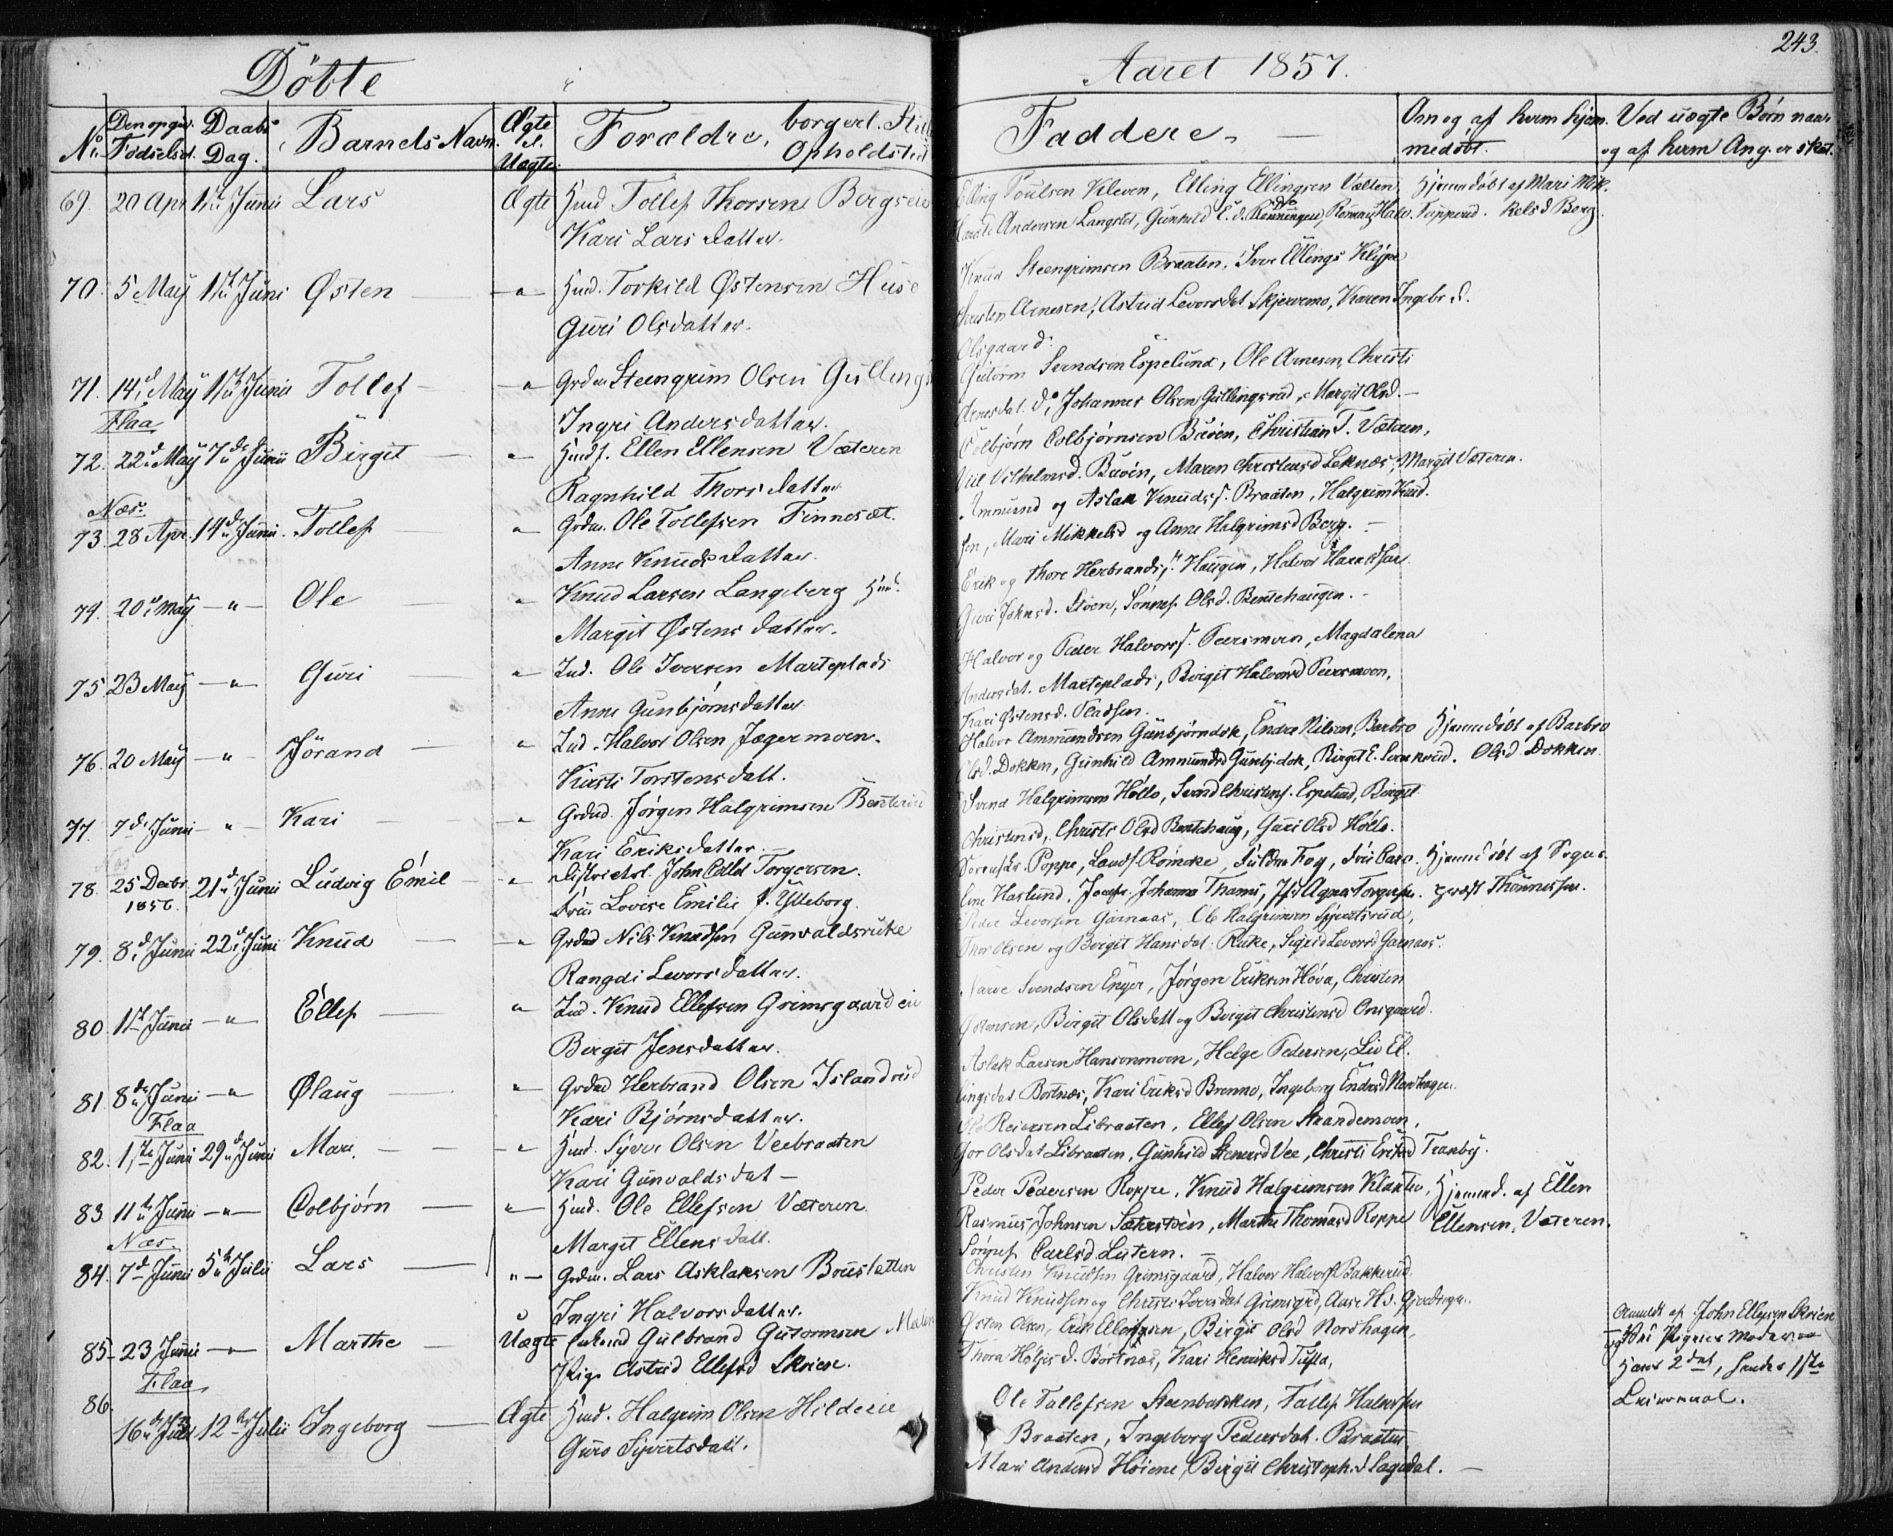 Döbte
Aaret 1857.
243.
No. Den opgiv. Fødselsd. Daabs Dag. Barnets Navn. Ægte el. Uægte. Forældre, borgerl. Opholdsted
Faddere. Om og af hvem hjem. medöbt. Ved uægte Børn naar og af hvem Ang. er skeet.
69. 20 Apr 1ste Junii Lars Ægte Huusd Tollef Thorsen Bergseie
Kari Larsdatter.
Elling Poulsen Kleven, Elling Ellingsen
Andersen Langslet, Gunhild
Hjemmedöbt af Mari Mik-
kelsd Berg.
70. 5 May 1ste Juni Østen Huusd. Torkild Østensen Huse
Guri Olsdatter.
Knud Steengrimsen Braaten, Iver Ellings
Arnesen, Astrid Levorsdat Skjervemo, Karen Ingebr d.
Olsgaard.
71. 14d May 1ste Junii Tollef Grdm Steengrim Olsen Gullings
Ingri Andersdatter.
Guttorm Svendsen Espelund, Ole Arnesen, Christi
Arnesdat. do, Johannes Olsen Gullingsrud, Margit Olsd.
Flaa
72. 22d May 7de Junii Birgit Huusf. Ellen Ellensen Væteren
Ragnhild Thorsdatter
Colbjørn Colbjørnsen Buöen, Christian T. Væteren,
Vilhelmsd. Buöen, Maren Christensd Leknæs, Margit Væteren.
Næs.
73. 28 Apr. 14d Junii. Tollef Grdm. Ole Tollefsen Finnesæt.
Anne Knudsdatter.
Ammund og Aslak Knudss. Braaten, Halgrim Knud.
sen, Mari Mikkelsd og Anne Halgrimsd Berg.
74. 20d May Ole Knud Larsen Langeberg Huusd.
Margit Østensdatter.
Erik og Thore Herbrandss. Haugen, Halvor Haraldsen
Guri Johnsd. Støen, Sønnef. Olsd. Bentehaugen.
75. 23 May Guri Ind. Ole Iversen Marteplads
Anne Gunbjørnsdatter
Halvor og Peder Halvorss. Peersmoen, Magdalena
Andersdat. Marteplads, Birgit Halvorsd Peersmoen,
Kari Østensd. Pladsen.
76. 20 May Jörand Ind. Halvor Olsen Jægermoen.
Kirsti Torstensdatt.
Halvor Ammundsen Gunbjørndok, Endre Nilsen, Barbro
Olsd. Dokken, Gunhild Ammundsd Gunbj.dok, Birgit E.
Hjemmedöbt af Barbro
Olsd Dokken
77. 7de Junii Kari Grdm. Jørgen Halgrimsen
Kari Eriksdatter.
Svend Halgrimsen Hollo, Svend Christens. Espelund, Birgit
Christensd, Christi Olsd Bentehaug, Guri Olsd Hollo.
78. 25 Decbr. 1856. 21d Junii Ludvig Emil Districtsl. John Collet Torgersen.
Fru Lovise Emilie f. Ytteborg.
Sorenskr. Poppe, Landf. Römcke, Fuldm. Fog, Fru Caro-
line Haslund, Jomfr. Johanna Thams, Agnes Torgersen.
Hjemmedöbt af Sogne-
præst Thönnessen.
79. 8d Junii 22d Juni Knud Grdm Nils Knudsen Gunvaldsruke
Rangdi Levorsdatter.
Peder Levorsen Garnaas, Ole Halgrimsen Sjvertsrud,
Thor Olsen og Birgit Hansdat. Ruke, Sigrid Levorsd Garnaas.
80. 11te Junii Ellef Ind. Knud Ellefsen Grimsgaardeie
Birgit Jensdatter.
Narve Svendsen Enger, Jørgen Eriksen Hova, Christen
Ostensen, Birgit Olsdatt og Birgit Christensd Onsgaard.
81. 8de Junii Ølaug Grdm Herbrand Olsen Islandrud
Kari Bjørnsdatter.
Aslak Larsen Hansenmoen, Helge Pedersen, Liv El-
lingsdat Bortnæs, Kari Eriksd Brenno, Ingeborg Endresd Nordhagen.
Flaa
82. 1ste Juni 29d Junii Mari. Huusd. Syver Olsen Veebraaten
Kari Gunvaldsdat
Ole Reiersen Libraaten, Ellef Olsen Strandemoen,
Gor Olsdat Libraaten, Gunhild Stenersd Vee, Christi Tranby.
83. 11te Junii Colbjørn Huusd. Ole Ellefsen Væteren
Margit Ellensdatt.
Peder Pedersen Roppe, Knud Halgrimsen
Rasmus Johnsen Sætersöen, Marthe Thomasd Roppe
Sönnef. Carlsd. Lutern.
Hjemmed. af Ellen
Ellensen, Væteren.
Næs.
84. 7d Junii 5te Julii Lars Grdm. Lars Asklaksen Bruusletten
Ingri Halvorsdatter.
Christen Knudsen Grimsgaard, Halvor Halvorss Bakkerud
Knud Knudsen og Christi Iversdat Grimsgrd,
85. 23 Junii Marthe Uægte Gulbrand Guttormsen
Pige Astrid Ellefsd Skrien.
Østen Olsen, Erik Birgit Olsd Nordhagen,
Thora Helgesd. Bortnæs, Kari Henriksd Tufta,
Anmeldt af John Ellefsen Skrien
og Pigens Moder
Hans 2det, hendes 1ste
Leiermaal.
Flaa
86. 16de Junii 12te Julii Ingeborg Ægte Huusd. Halgrim Olsen Hilde
Guro Sjvertsdatt.
Ole Tollefsen Steenbakken, Tollef Halvorsen
Braaten, Ingeborg Pedersdat. Braaten
Mari Andersd Høiene, Birgit Christoph.d Sagedal.